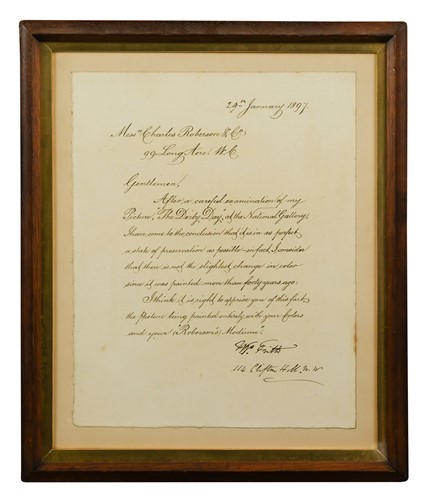 29th January 1897
Messrs Charles Roberson & Co
99 Long Acre. W.C
Gentlemen,
After a careful examination of my
Picture, "The Derby Day", at the National Gallery,
I have come to the conclusion that it is in as perfect
a state of preservation as possible – in fact, I consider
that there is not the slightest change in color
since it was painted more than forty years ago.
I think it is right to apprise you of this fact,
the Picture being painted entirely with your Colors
and your (Roberson's) Medium".
W. P. Frith
114 Clifton Hill. N. W